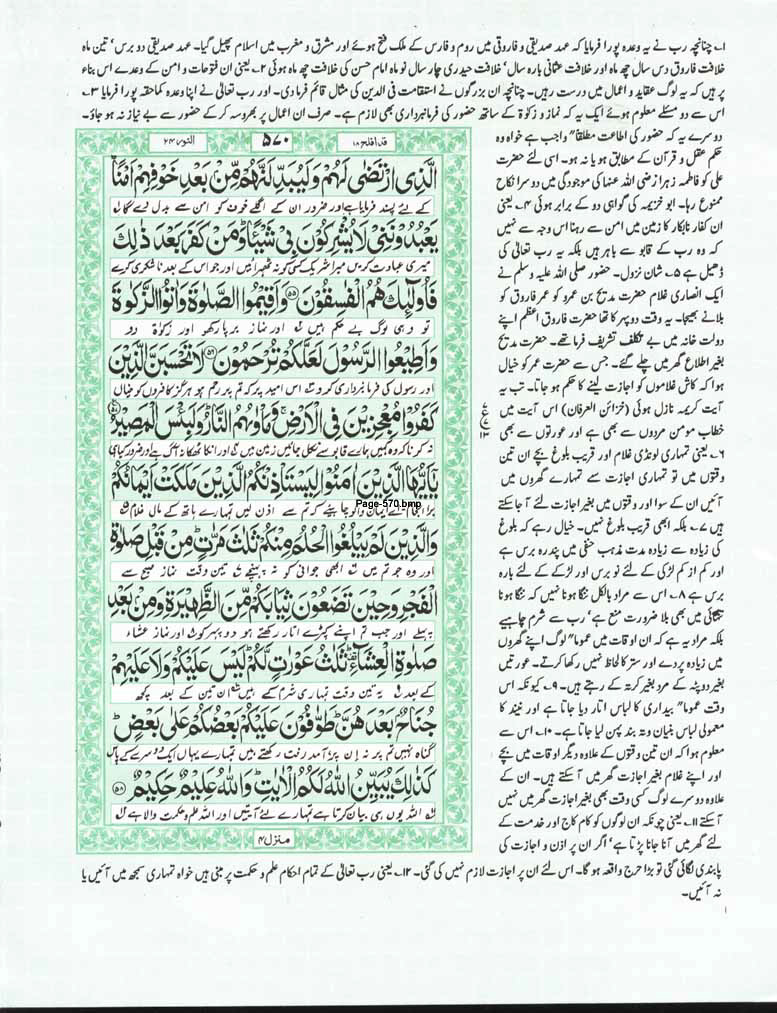 ۱۔ چنانچہ رب نے یہ وعدہ پورا فرمایا کہ عہد صدیقی و فاروقی میں روم و فارس کے ملک فتح ہوئے اور مشرق و مغرب میں اسلام پھیل گیا۔ عہد صدیقی دو برس' تین ماہ
خلافت فاروقی دس سال چھ ماہ اور خلافت عثمانی بارہ سال' خلافت حیدری چار سال نو ماہ امام حسن کی خلافت چھ ماہ ہوئی ۲۔ یعنی ان فتوحات و امن کے وعدے اس بناء
پر ہیں کہ یہ لوگ عقاید و اعمال میں درست رہیں۔ چنانچہ ان بزرگوں نے استقامت فی الدین کی مثال قائم فرما دی۔ اور رب تعالیٰ نے اپنا وعدہ کماحقہ پورا فرمایا ۳۔
اس سے دو مسئلے معلوم ہوئے ایک یہ کہ نماز و زکوٰۃ کے ساتھ حضور کی فرمانبرداری بھی لازم ہے۔ صرف ان اعمال پر بھروسہ کر کے حضور سے بے نیاز نہ ہو جاؤ۔
دوسرے یہ کہ حضور کی اطاعت مطلقاً" واجب ہے خواہ وہ
حکم عقل و قرآن کے مطابق ہو یا نہ ہو۔ اسی لئے حضرت
علی کو فاطمہ زہرا رضی اللہ عنہا کی موجودگی میں دوسرا نکاح
ممنوع رہا۔ ابو خزیمہ کی گواہی دو کے برابر ہوئی ۴۔ یعنی
ان کفار نابکار کا زمین میں امن سے رہنا اس وجہ سے نہیں
کہ وہ رب کے قابو سے باہر ہیں بلکہ یہ رب تعالیٰ کی
ڈھیل ہے ۵۔ شان نزول۔ حضور صلی اللہ علیہ وسلم نے
ایک انصاری غلام حضرت مدلج بن عمرو کو عمر فاروق کو
بلانے بھیجا۔ یہ وقت دوپہر کا تھا حضرت فاروق اعظم اپنے
دولت خانہ میں بے تکلف تشریف فرما تھے۔ حضرت مدلج
بغیر اطلاع گھر میں چلے گئے۔ جس سے حضرت عمر کو خیال
ہوا کہ کاش غلاموں کو اجازت لینے کا حکم ہو جاتا۔ تب یہ
آیت کریمہ نازل ہوئی (خزائن العرفان) اس آیت میں
خطاب مومن مردوں سے بھی ہے اور عورتوں سے بھی
۶۔ یعنی تمہاری لونڈی غلام اور قریب بلوغ بچے ان تین
وقتوں میں تو تمہاری اجازت سے تمہارے گھروں میں
آئیں ان کے سوا اور وقتوں میں بغیر اجازت لئے آ جا سکتے
ہیں ۷۔ بلکہ ابھی قریب بلوغ نہیں۔ خیال رہے کہ بلوغ
کی زیادہ سے زیادہ مدت مذہب حنفی میں پندرہ برس ہے
اور کم از کم لڑکی کے لئے نو برس اور لڑکے کے لئے بارہ
برس ہے ۸۔ اس سے مراد بالکل ننگا ہونا نہیں کہ ننگا ہونا
تنہائی میں بھی بلا ضرورت منع ہے' رب سے شرم چاہیے
بلکہ مراد یہ ہے کہ ان اوقات میں عموماً" لوگ اپنے گھروں
میں زیادہ پردے اور ستر کا لحاظ نہیں رکھا کرتے۔ عورتیں
بغیر دوپٹہ کے مرد بغیر کرتہ کے رہتے ہیں۔ ۹۔ کیونکہ اس
وقت عموماً" بیداری کا لباس اتار دیا جاتا ہے اور نیند کا
معمولی لباس بنیان و تہ بند پہن لیا جاتا ہے۔ ۱۰۔ اس سے
معلوم ہوا کہ ان تین وقتوں کے علاوہ دیگر اوقات میں بچے
اور اپنے غلام بغیر اجازت گھر میں آ سکتے ہیں۔ ان کے
علاوہ دوسرے لوگ کسی وقت بھی بغیر اجازت گھر میں نہیں
آ سکتے ۱۱۔ یعنی چونکہ ان لوگوں کو کام کاج اور خدمت کے
لئے گھر میں آنا جانا پڑتا ہے' اگر ان پر اذن و اجازت کی
پابندی لگائی گئی تو بڑا حرج واقعہ ہو گا۔ اس لئے ان پر اجازت لازم نہیں کی گئی۔ ۱۲۔ یعنی رب تعالیٰ کے تمام احکام علم و حکمت پر مبنی ہیں خواہ تمہاری سمجھ میں آئیں یا
نہ آئیں۔
قد افلح ۱۸
۵۷۰
النور ۲۴
الَّذِی ارْتَضٰی لَهُمْ وَلَیُبَدِّلَنَّهُمْ مِّنْۢ بَعْدِ خَوْفِهِمْ اَمْنًا
کے لئے پسند فرمایا ہے اور ضرور ان کے اگلے خوف کو امن سے بدل دے گا
یَعْبُدُوْنَنِیْ لَا یُشْرِكُوْنَ بِیْ شَیْـًٔا وَمَنْ كَفَرَ بَعْدَ ذٰلِكَ
میری عبادت کریں میرا شریک کسی کو نہ ٹھہرائیں اور جو اس کے بعد ناشکری کرے
فَاُولٰٓىِٕكَ هُمُ الْفٰسِقُوْنَ ۵۵ وَاَقِیْمُوا الصَّلٰوةَ وَاٰتُوا الزَّكٰوةَ
تو وہی لوگ بے حکم ہیں اور نماز برپا رکھو اور زکوٰۃ دو
وَاَطِیْعُوا الرَّسُوْلَ لَعَلَّكُمْ تُرْحَمُوْنَ ۵۶ لَا تَحْسَبَنَّ الَّذِیْنَ
اور رسول کی فرمانبرداری کرو اس امید پر کہ تم پر رحم ہو ہرگز کافروں کو خیال
كَفَرُوْا مُعْجِزِیْنَ فِی الْاَرْضِ وَمَاْوٰىهُمُ النَّارُ وَلَبِئْسَ الْمَصِیْرُ
نہ کرنا کہ وہ کہیں ہمارے قابو سے نکل جائیں زمین میں اور ان کا ٹھکانا آگ ہے اور ضرور کیا ہی
یٰۤاَیُّهَا الَّذِیْنَ اٰمَنُوْا لِیَسْتَاْذِنْكُمُ الَّذِیْنَ مَلَكَتْ اَیْمَانُكُمْ
Page-570.bmp
برا انجام اے ایمان والو چاہئے کہ تم سے اذن لیں تمہارے ہاتھ کے مال غلام
وَالَّذِیْنَ لَمْ یَبْلُغُوا الْحُلُمَ مِنْكُمْ ثَلٰثَ مَرّٰتٍ مِنْ قَبْلِ صَلٰوةِ
اور وہ جو تم میں ابھی جوانی کو نہ پہنچے تین وقت نماز صبح سے
الْفَجْرِ وَحِیْنَ تَضَعُوْنَ ثِیَابَكُمْ مِّنَ الظَّهِیْرَةِ وَمِنْۢ بَعْدِ
پہلے اور جب تم اپنے کپڑے اتار رکھتے ہو دوپہر کو اور نماز عشاء
صَلٰوةِ الْعِشَآءِ ثَلٰثُ عَوْرٰتٍ لَّكُمْ لَیْسَ عَلَیْكُمْ وَلَا عَلَیْهِمْ
کے بعد یہ تین وقت تمہاری شرم کے ہیں ان تین کے بعد کچھ
جُنَاحٌۢ بَعْدَهُنَّ طَوّٰفُوْنَ عَلَیْكُمْ بَعْضُكُمْ عَلٰی بَعْضٍ
گناہ نہیں تم پر نہ ان پر آمد و رفت رکھتے ہیں تمہارے یہاں ایک دوسرے کے پاس
كَذٰلِكَ یُبَیِّنُ اللّٰهُ لَكُمُ الْاٰیٰتِ وَاللّٰهُ عَلِیْمٌ حَكِیْمٌ ۵۸
اللہ یوں ہی بیان کرتا ہے تمہارے لئے آیتیں اور اللہ علم و حکمت والا ہے
منزل ۴